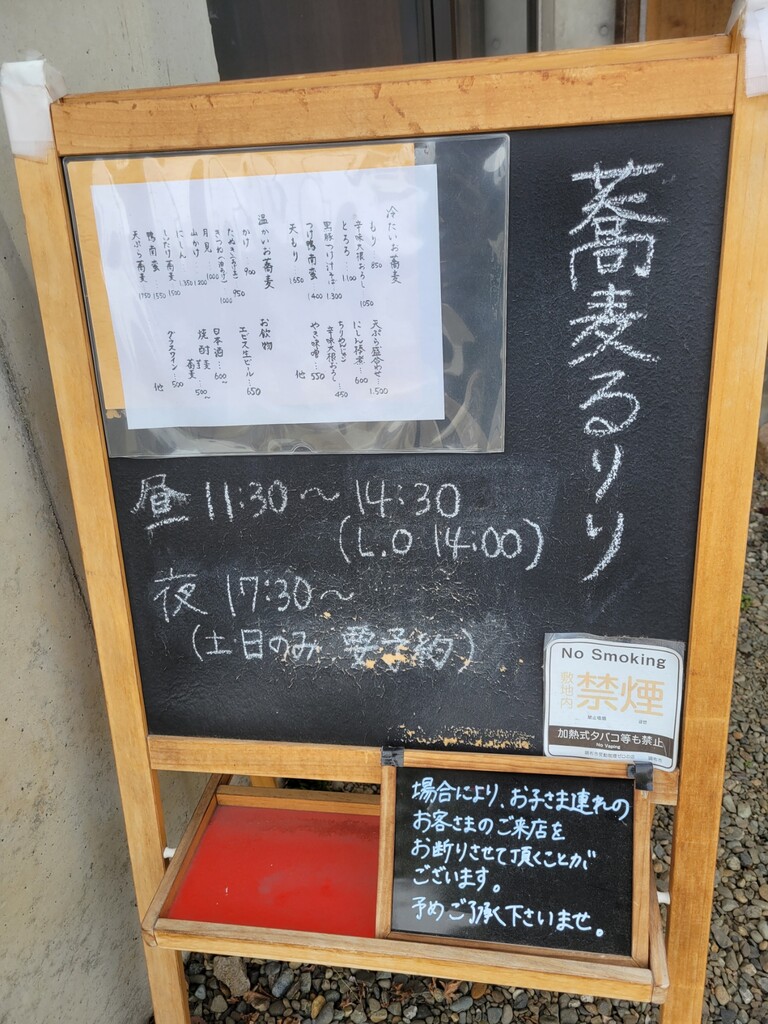 蕎麦るりり
冷たいお蕎麦
もり 850
辛味大根おろし 1050
とろろ 1100
黒豚つけ汁そば 1300
つけ鴨南蛮 1400
天もり 1650
温かいお蕎麦
かけ 900
たぬき 950
きつね 1000
月見 1000
山かけ 1200
にしん 1350
鴨南蛮 1550
天ぷら蕎麦 1750
天ぷら盛合わせ…1,500
にしん棒煮…600
辛味大根おろし…450
やき味噌…550
他
お飲物
エビス生ビール…650
日本酒…600〜
焼酎 麦 蕎麦…500〜
グラスワイン…500
他
昼 11:30〜14:30
(L.O 14:00)
夜 17:30〜
(土・日のみ 要予約)
No Smoking
敷地内
禁煙
加熱式タバコ等も禁止
No Vaping
場合により、お子さま連れの
お客さまのご来店を
お断りさせて頂くことが
ございます。
予めご了承下さいませ。